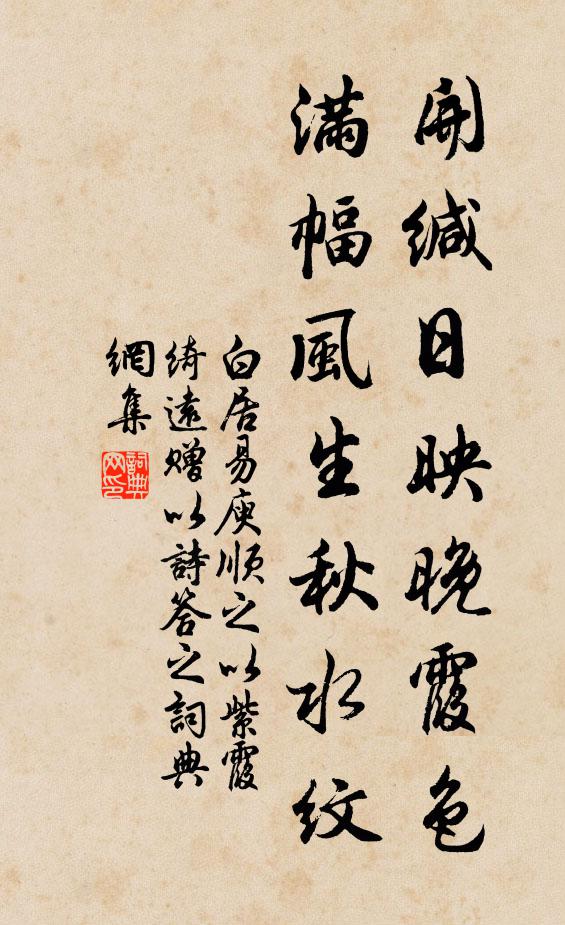 開緘日映晚霞色
滿幅風生秋水紋
白居易庾順之以紫霞
綺遠赠以詩答之詞典
網集
詞典
网印